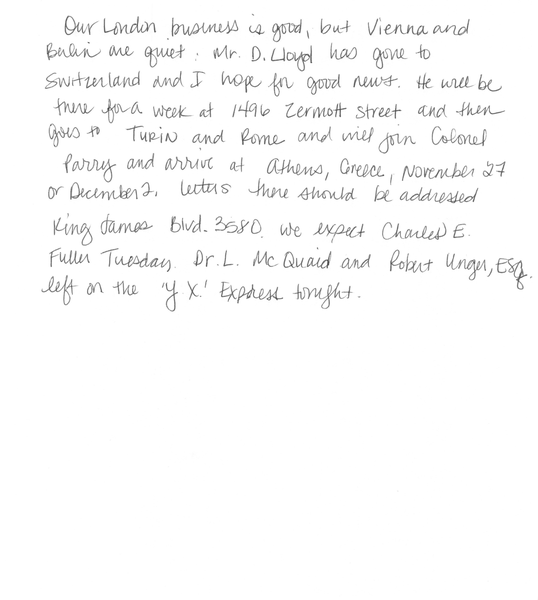 Our London business is good, but Vienna and
Berlin are quiet. Mr. D. Lloyd has gone to
Switzerland and I hope for good news. He will be
there for a week at 1496 Zermott Street and then
goes to Turin and Rome and will join Colonel
Parry and arrive at Athens, Greece, November 27
or December 2. Letters there should be addressed
King James Blvd. 3580. We expect Charles E.
Fuller Tuesday. Dr. L. McQuaid and Robert Unger, Esq.
left on the 'Y X.' Express tonight.